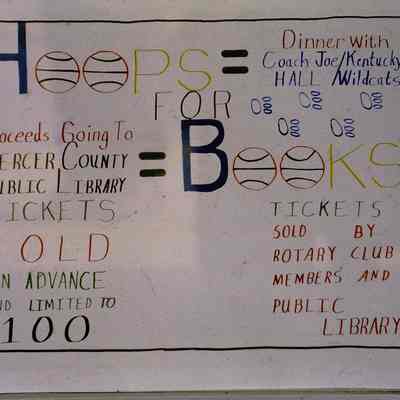 HOOPS =
Dinner With
Coach Joe/Kentucky
HALL Wildcats
FOR
oceeds Going To
ERCER COUNTY
UBLIC LIBRARY
= BOOKS
ICKETS
OLD
N ADVANCE
ND LIMITED TO
100
TICKETS
SOLD BY
ROTARY CLUB
MEMBERS AND
PUBLIC
LIBRARY